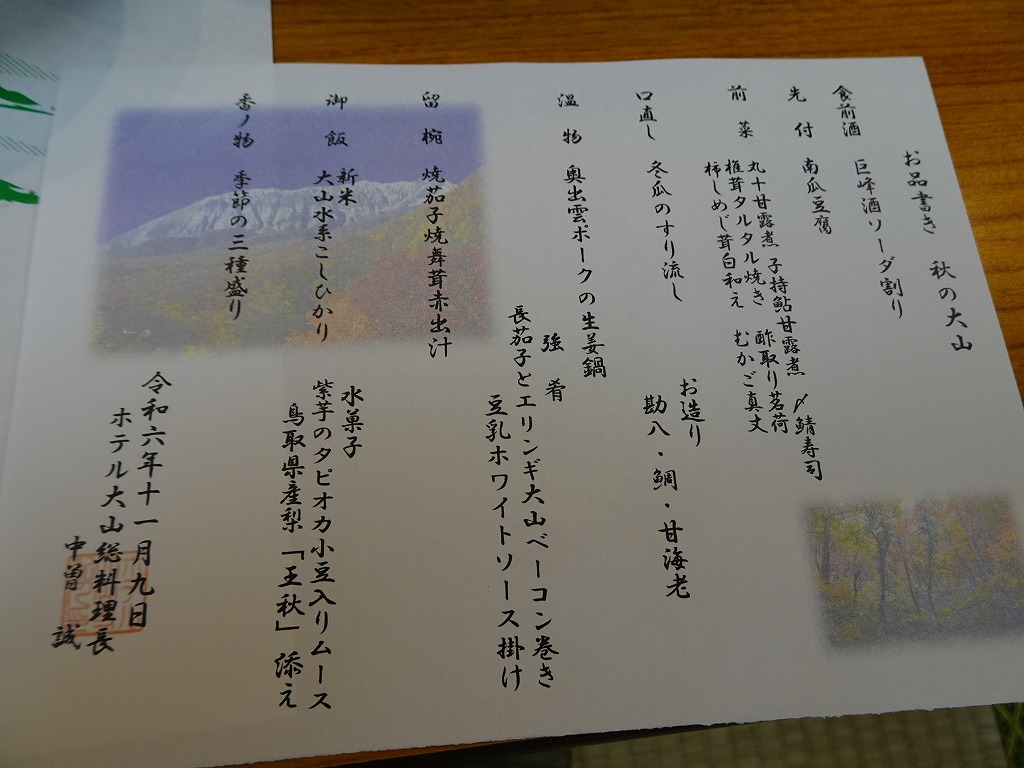 お品書き　秋の大山
食前酒　巨峰酒ソーダ割り
先付　南瓜豆腐
前菜　丸十甘露煮　子持鮎甘露煮　〆鯖寿司
椎茸タルタル焼き　酢取り茗荷
柿しめじ茸白和え　むかご真丈
お造り
勘八・鯛・甘海老
口直し　冬瓜のすり流し
温物　奥出雲ポークの生姜鍋
強肴
長茄子とエリンギ大山ベーコン巻き
豆乳ホワイトソース掛け
留椀　焼茄子焼舞茸赤出汁
御飯　新米
大山水系こしひかり
香ノ物　季節の三種盛り
水菓子
紫芋のタピオカ小豆入りムース
鳥取県産梨「王秋」添え
令和六年十一月九日
ホテル大山総料理長
中曽　誠